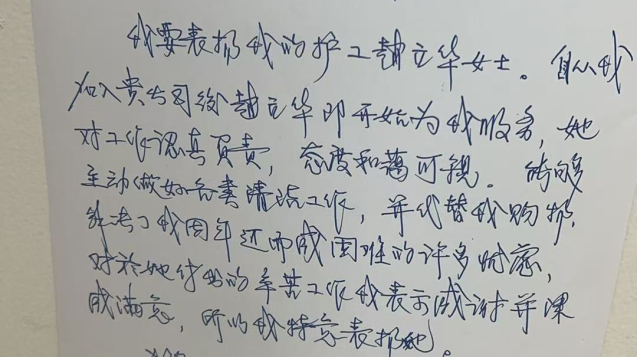 我要表扬我的护工赵立华女士。自从我
加入贵公司後赵立华即开始为我服务，她
对工作認真負責，态度和藹可親。能够
主动做好各类清洁工作，并代替我购物，
我因年迈而感困难的许多
对於她付出的辛苦工作我表示感谢并深
感满意，所以我特意表扬她。